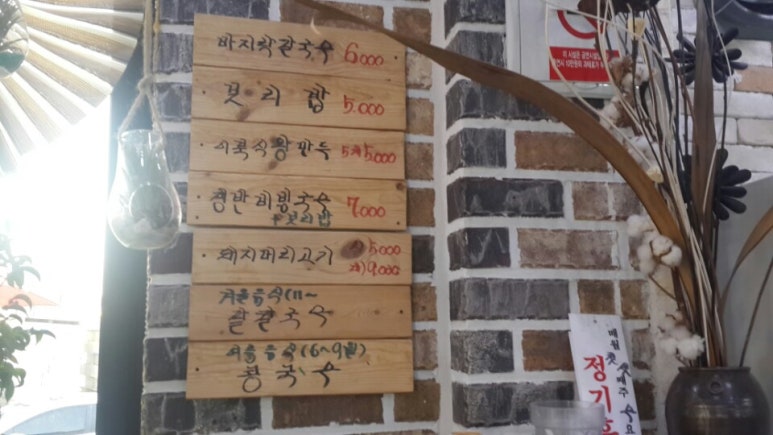 바지락칼국수 6000
보리밥 5.000
시콕식왕만두 5개5.000
쟁반비빔국수 7000
+보리밥
돼지머리고기 소)5000
대)9,000
겨울음식(11~
팥칼국수
여름음식(6~9월)
콩국수
매월 첫, 셋째주 수요
정기휴